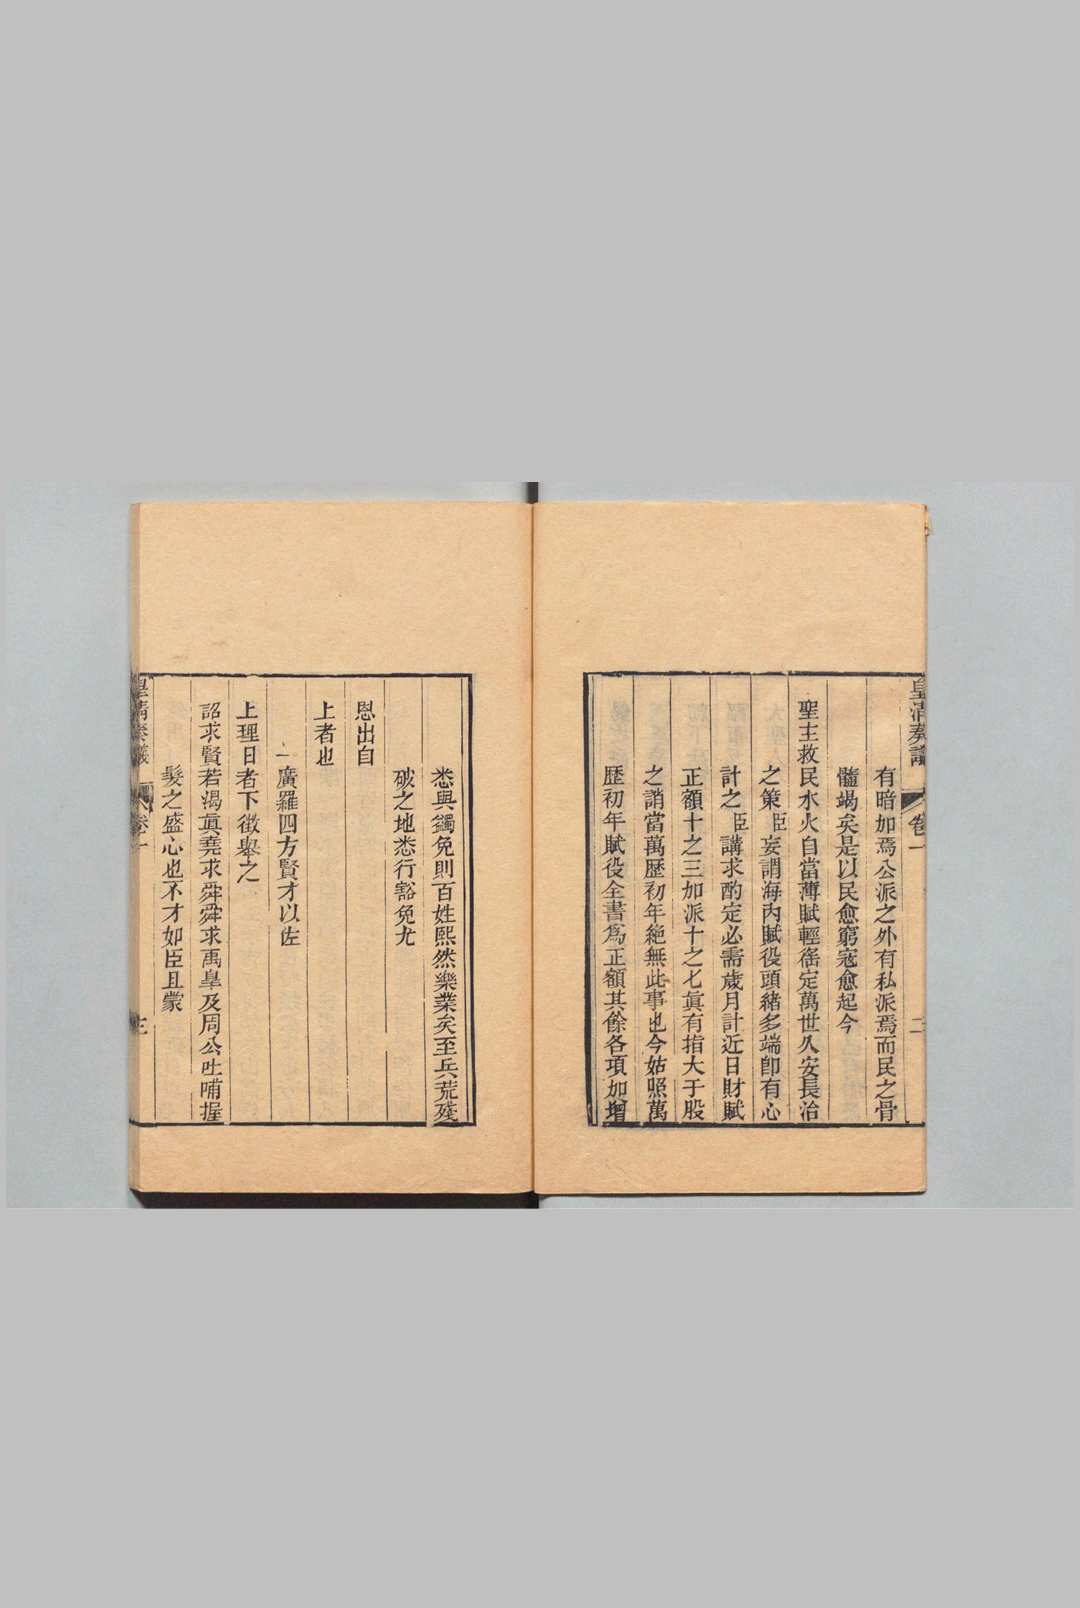 皇清奏議
卷一
二
有暗加焉公派之外有私派焉而民之骨
髓竭矣是以民愈窮寇愈起今
聖主救民水火自當薄賦輕徭定萬世久安長治
之策臣妄謂海內賦役頭緒多端卽有心
計之臣講求酌定必需歲月計近日財賦
正額十之三加派十之七眞有指大于股
之誚當萬歷初年絶無此事也今姑照萬
歷初年賦役全書爲正額其餘各項加增
悉與蠲免則百姓熙然樂業矣至兵荒殘
破之地悉行豁免尤
恩出自
上者也
一廣羅四方賢才以佐
上理日者下徵舉之
詔求賢若渴眞堯求舜舜求禹臯及周公吐哺握
髮之盛心也不才如臣且蒙
皇清奏議
卷一
三